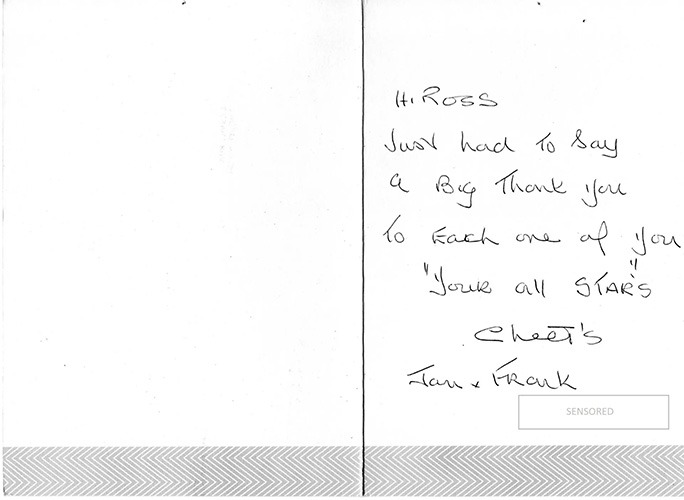 Hi Ross
Just had to say
a Big Thank you
to Each one of you
"Your all STAR'S"
Cheer's
Jan & Frank
SENSORED